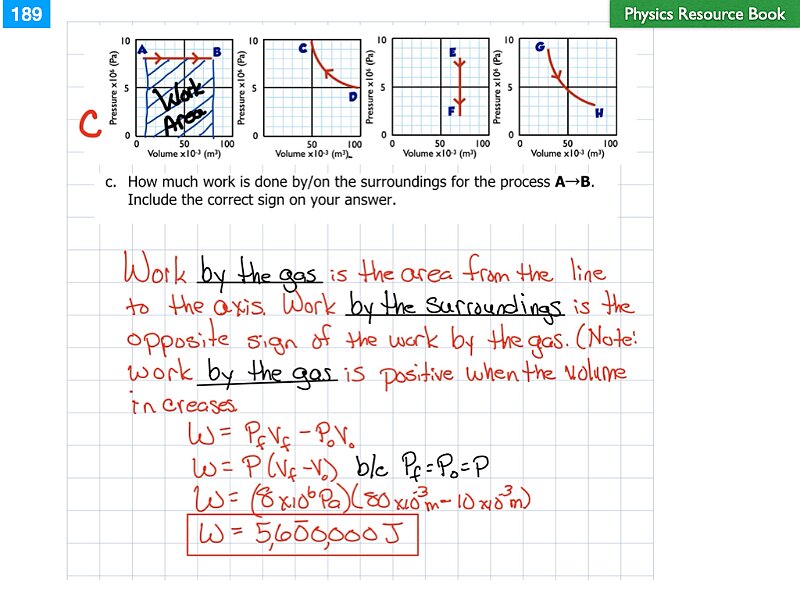 189
Physics Resource Book
C
10 A B 10 C 10 E 10 G
Pressure x10⁶ (Pa) Pressure x10⁶ (Pa) Pressure x10⁶ (Pa) Pressure x10⁶ (Pa)
5 Work Area 5 D 5 F 5 H
0 0 0 0
0 50 100 50 100 50 100 50 100
Volume x10⁻³ (m³) Volume x10⁻³ (m³) Volume x10⁻³ (m³) Volume x10⁻³ (m³)
c. How much work is done by/on the surroundings for the process A→B.
Include the correct sign on your answer.
Work by the gas is the area from the line
to the axis. Work by the surroundings is the
opposite sign of the work by the gas. (Note:
work by the gas is positive when the volume
increases
W = PfVf - P₀V₀
W = P(Vf - V₀) b/c Pf = P₀ = P
W = (8x10⁶Pa)(80x10⁻³m - 10x10⁻³m)
W = 5,600,000 J